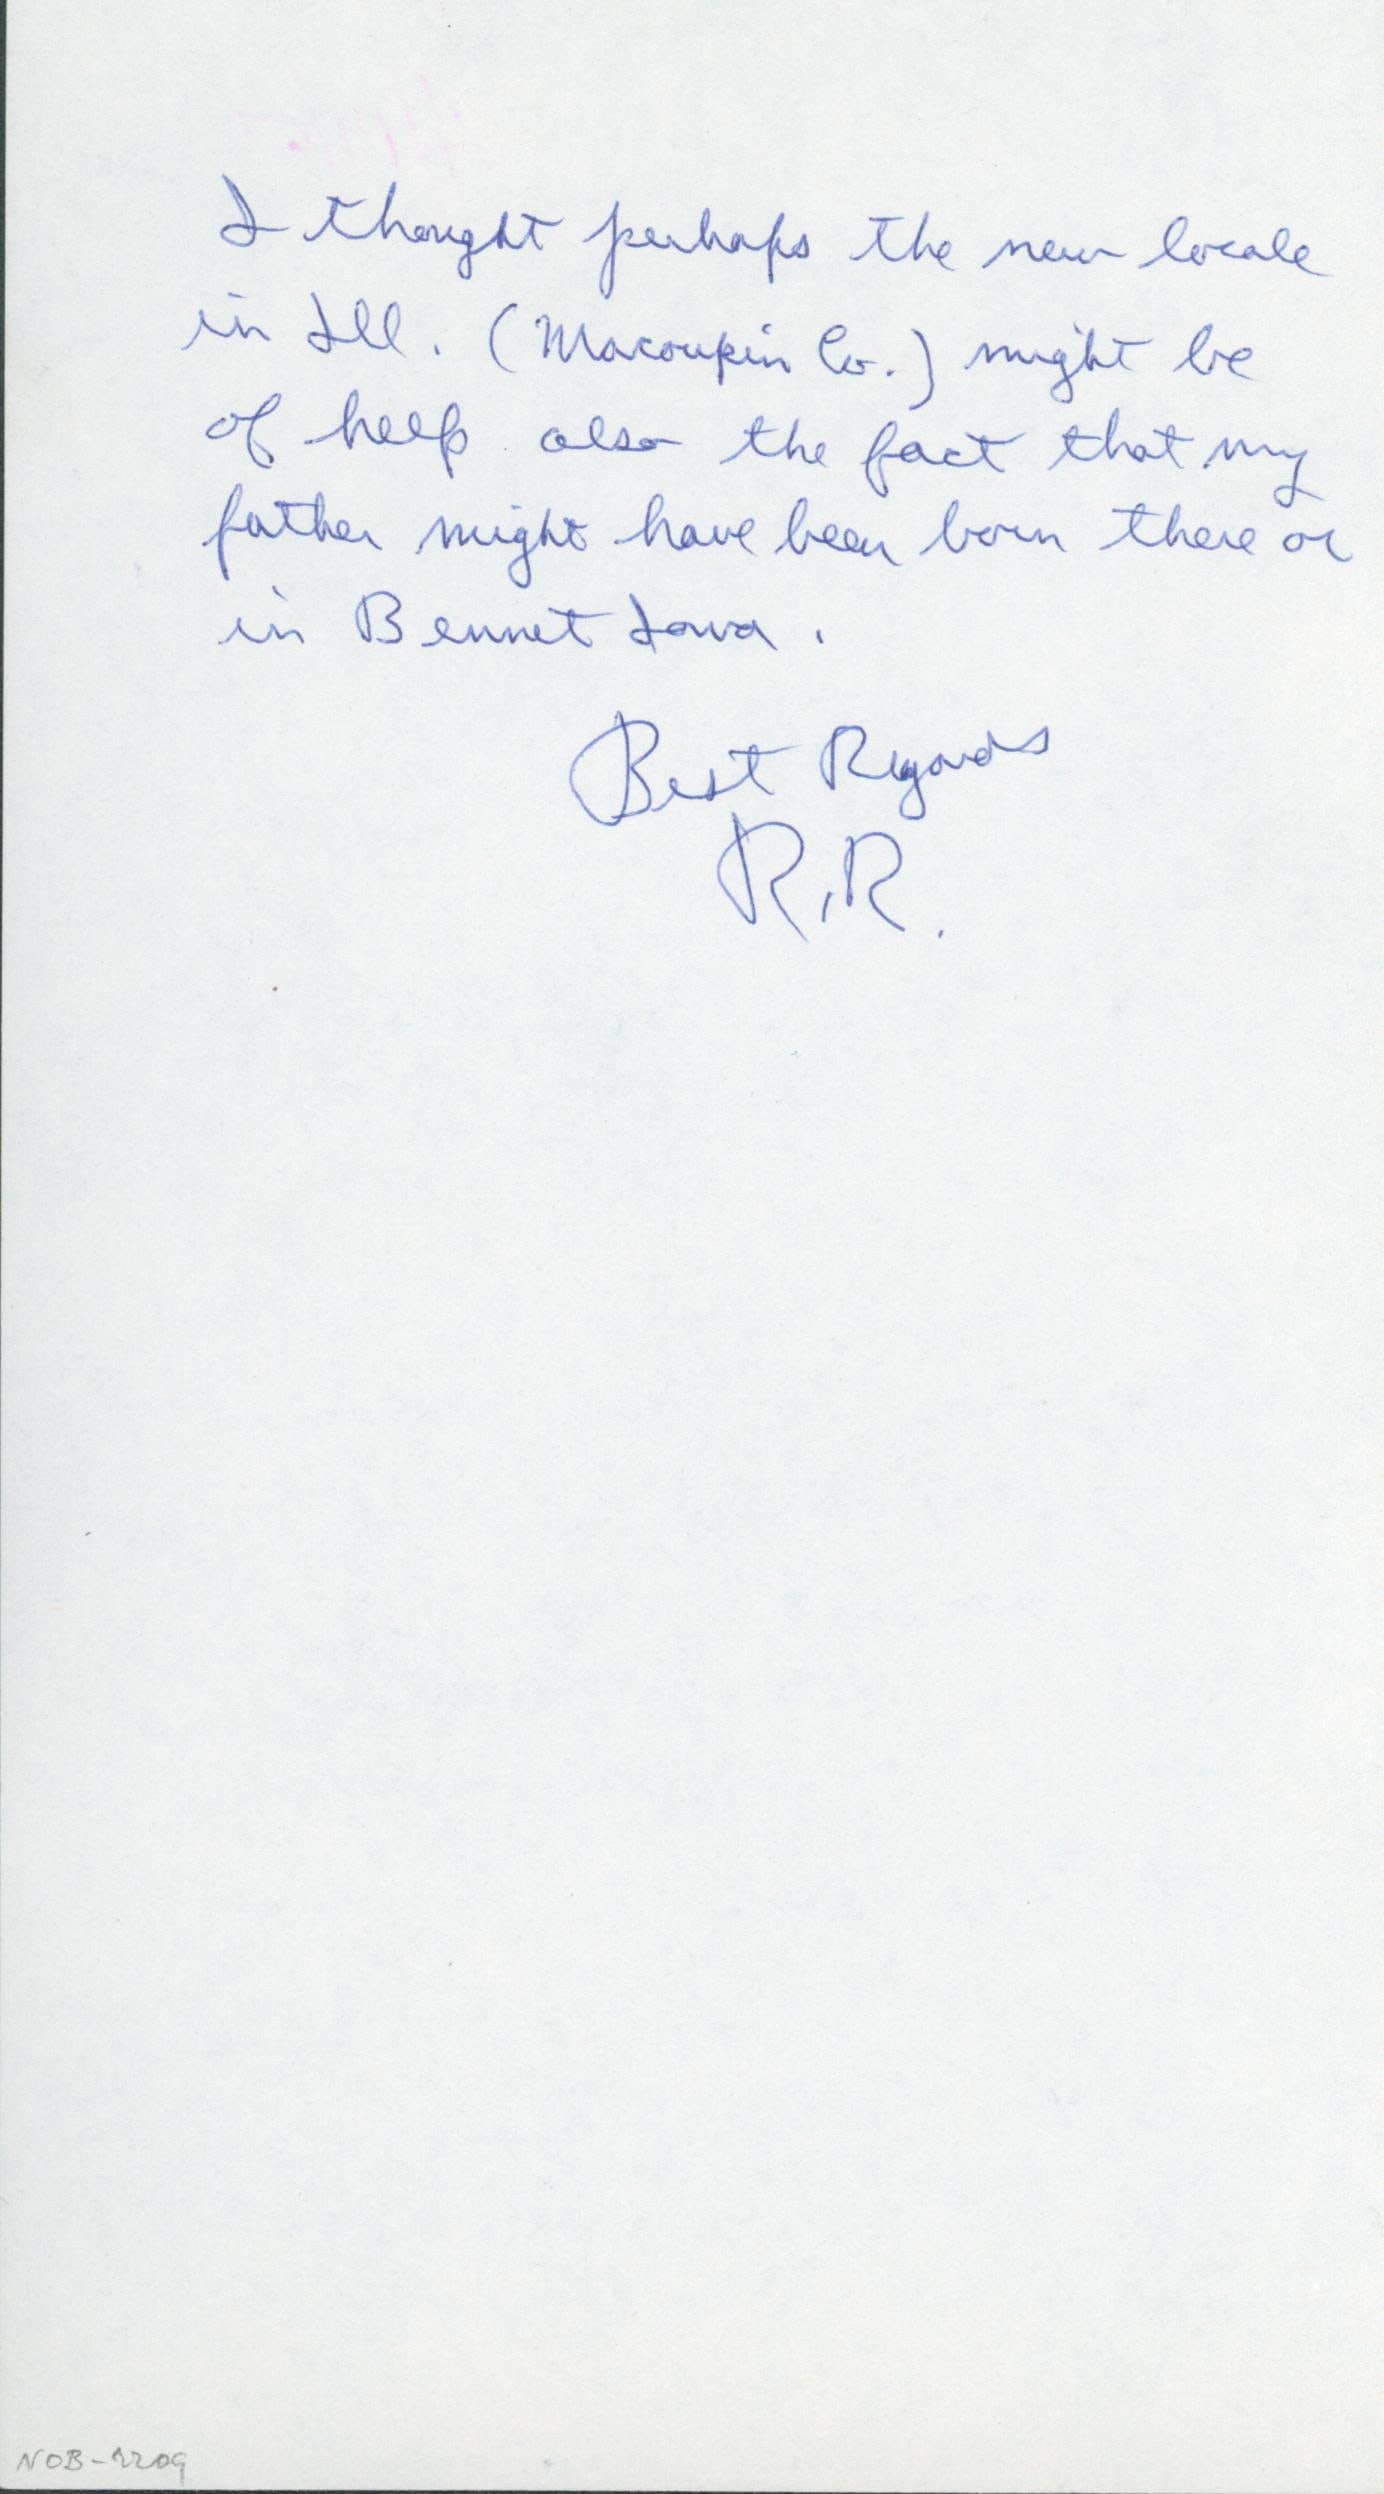 I thought perhaps the new locale
in Ill. (Macoupin Co.) might be
of help also the fact that my
father might have been born there or
in Bennet Iowa.
Best Regards
R.R.
NOB-2209